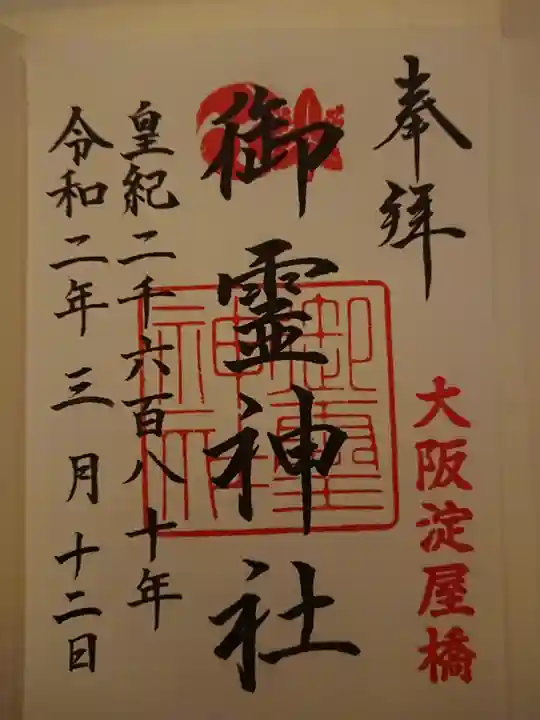 奉拝
大阪淀屋橋
御霊神社
御霊神社
皇紀二千六百八十年
令和二年三月十二日